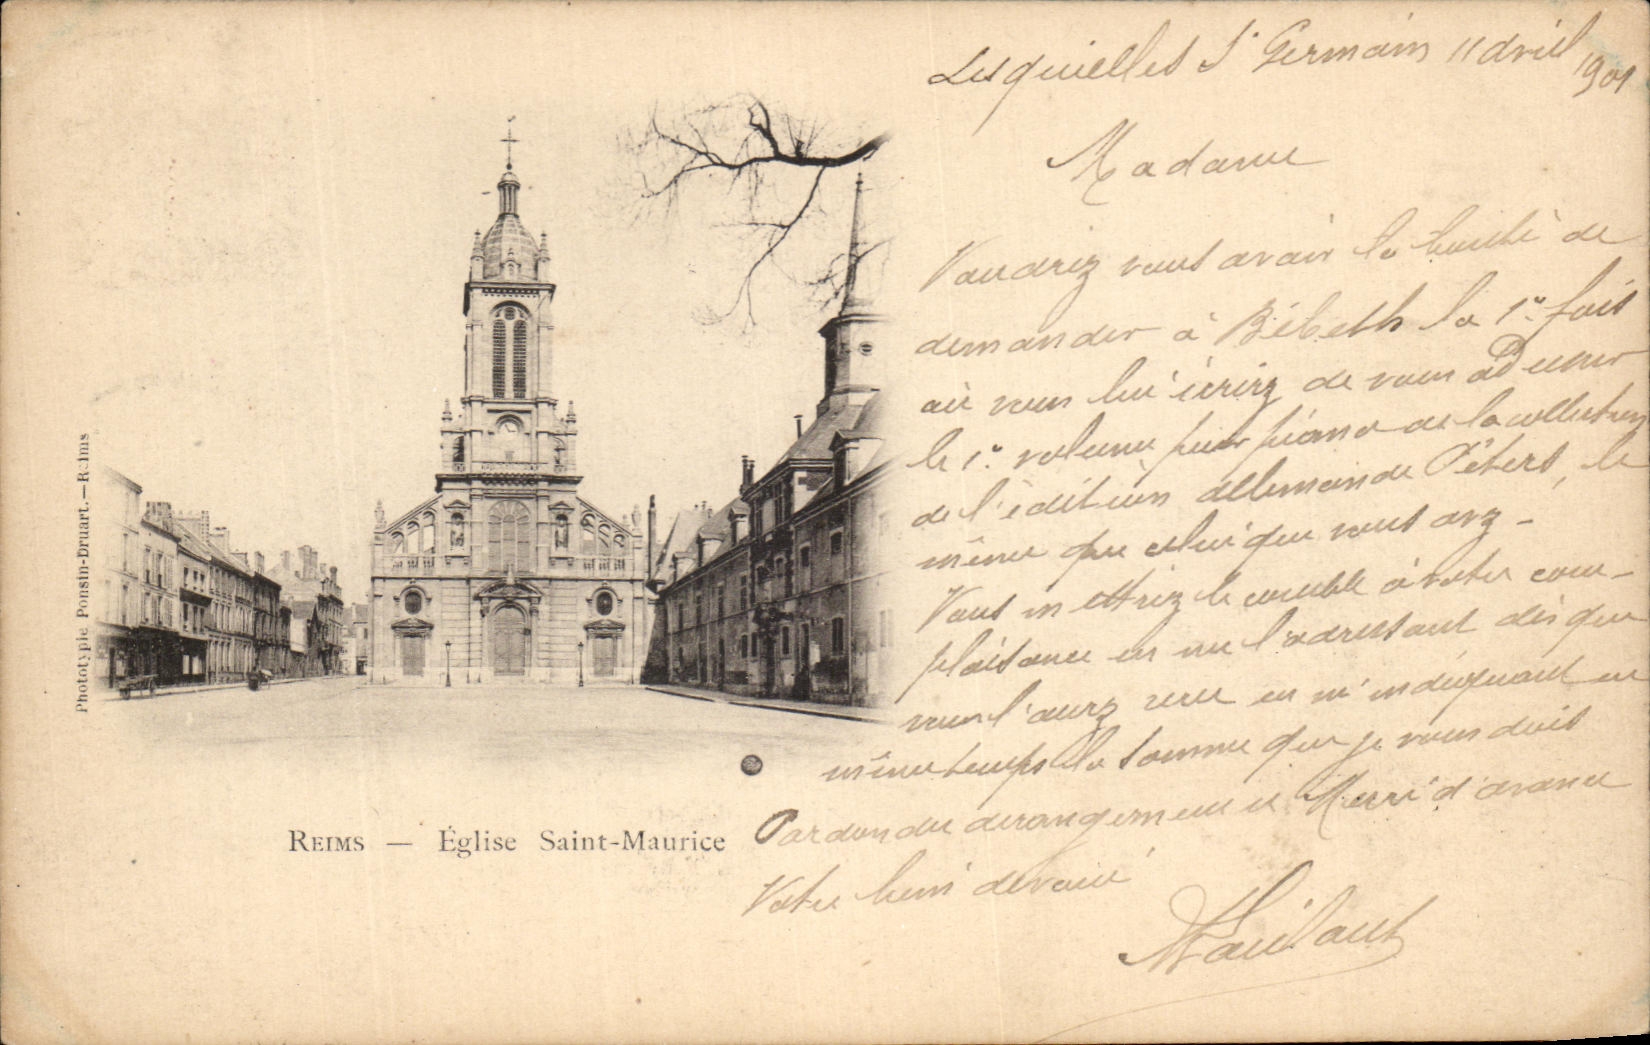 Lesquielles St Germain 11 avril 1901
Madame
Voudriez vous avoir la bonté de
demander à Bébeth la 1re fois
où vous lui écrirez de vous
le 1er volume pour piano de la collection
de l'édition allemande Péters, le
même que celui que vous avez -
Vous mettriez le comble à votre com-
plaisance en me l'adressant dès que
vous l'aurez reçu en m'indiquant en
même temps la somme que je vous dois
Pardon du derangement et Merci d'avance
Votre bien dévoué
Photototypie Ponsin-Druart.—Reims
REIMS — Église Saint-Maurice